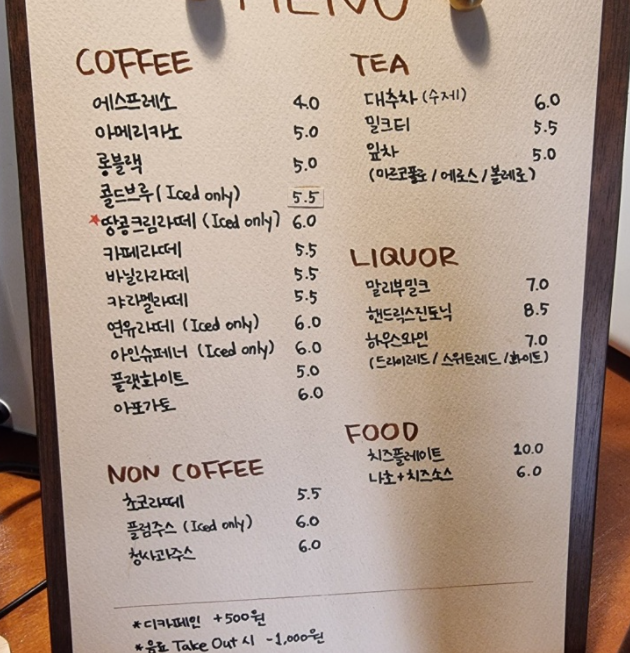 MENU
COFFEE
에스프레소 4.0
아메리카노 5.0
롱블랙 5.0
콜드브루 (Iced only) 5.5
*땅콩크림라떼 (Iced only) 6.0
카페라떼 5.5
바닐라라떼 5.5
캬라멜라떼 5.5
연유라떼 (Iced only) 6.0
아인슈페너 (Iced only) 6.0
플랫화이트 5.0
아포가토 6.0
NON COFFEE
초코라떼 5.5
플럼주스 (Iced only) 6.0
청사과주스 6.0
TEA
대추차 (수제) 6.0
밀크티 5.5
잎차 5.0
(마르코폴로 / 에로스 / 볼레로)
LIQUOR
말리부밀크 7.0
핸드릭스진토닉 8.5
하우스와인 7.0
(드라이레드 / 스위트레드 / 화이트)
FOOD
치즈플레이트 10.0
나초+치즈소스 6.0
*디카페인 +500원
*음료 Take Out 시 -1,000원